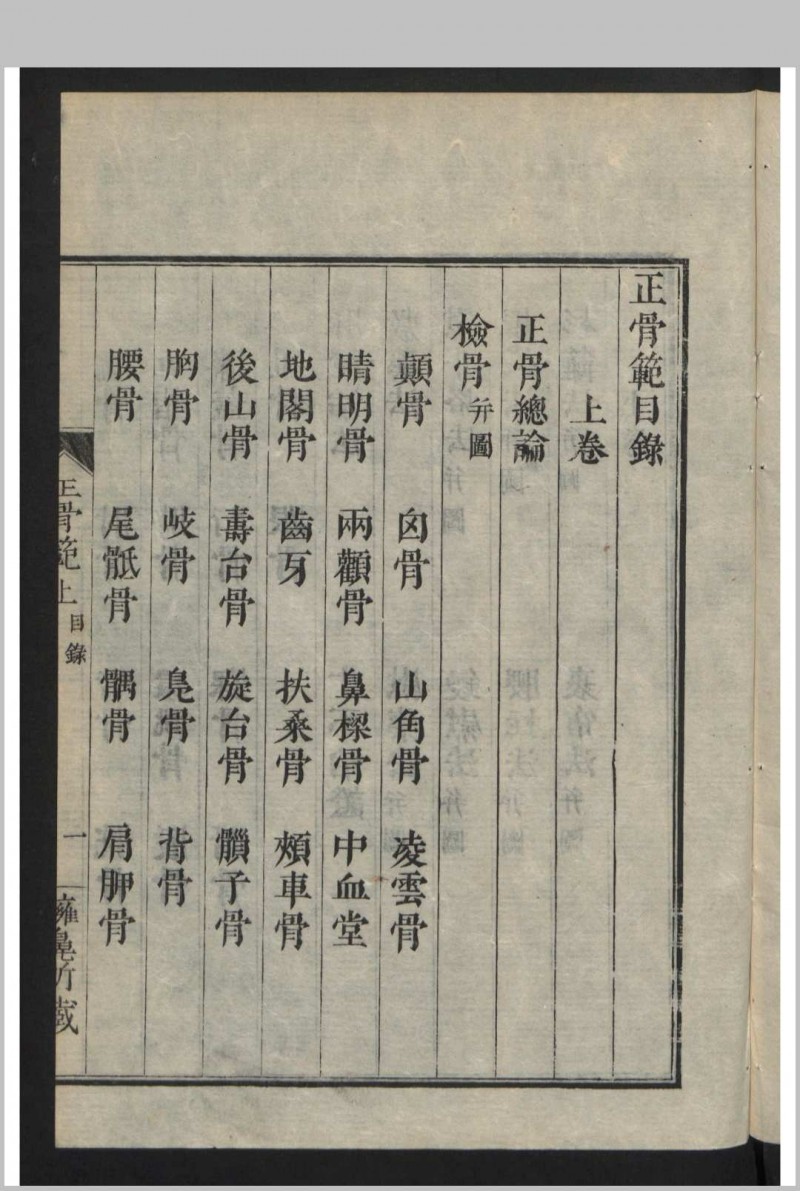 正骨範目錄
上卷
正骨總論
檢骨 幷圖
顛骨 囟骨 山角骨 凌雲骨
睛明骨 兩顴骨 鼻樑骨 中血堂
地閣骨 齒牙 扶桑骨 頰車骨
後山骨 壽台骨 旋台骨 䪼子骨
胸骨 岐骨 鳧骨 背骨
腰骨 尾骶骨 髃骨 肩胛骨
正骨範上 目錄 一